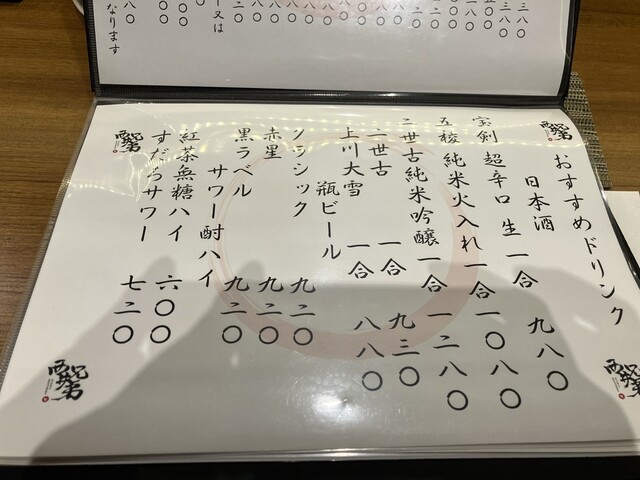 おすすめドリンク
日本酒
宝剣 超辛口 生 一合 九八〇
五稜 純米火入れ 一合 一〇八〇
二世古純米吟醸 一合 一二八〇
二世古 一合 九三〇
上川大雪 一合 八八〇
瓶ビール
クラシック 九二〇
赤星 九二〇
黒ラベル 九二〇
サワー酎ハイ
紅茶無糖ハイ 六〇〇
すだちサワー 七二〇
又は
なります